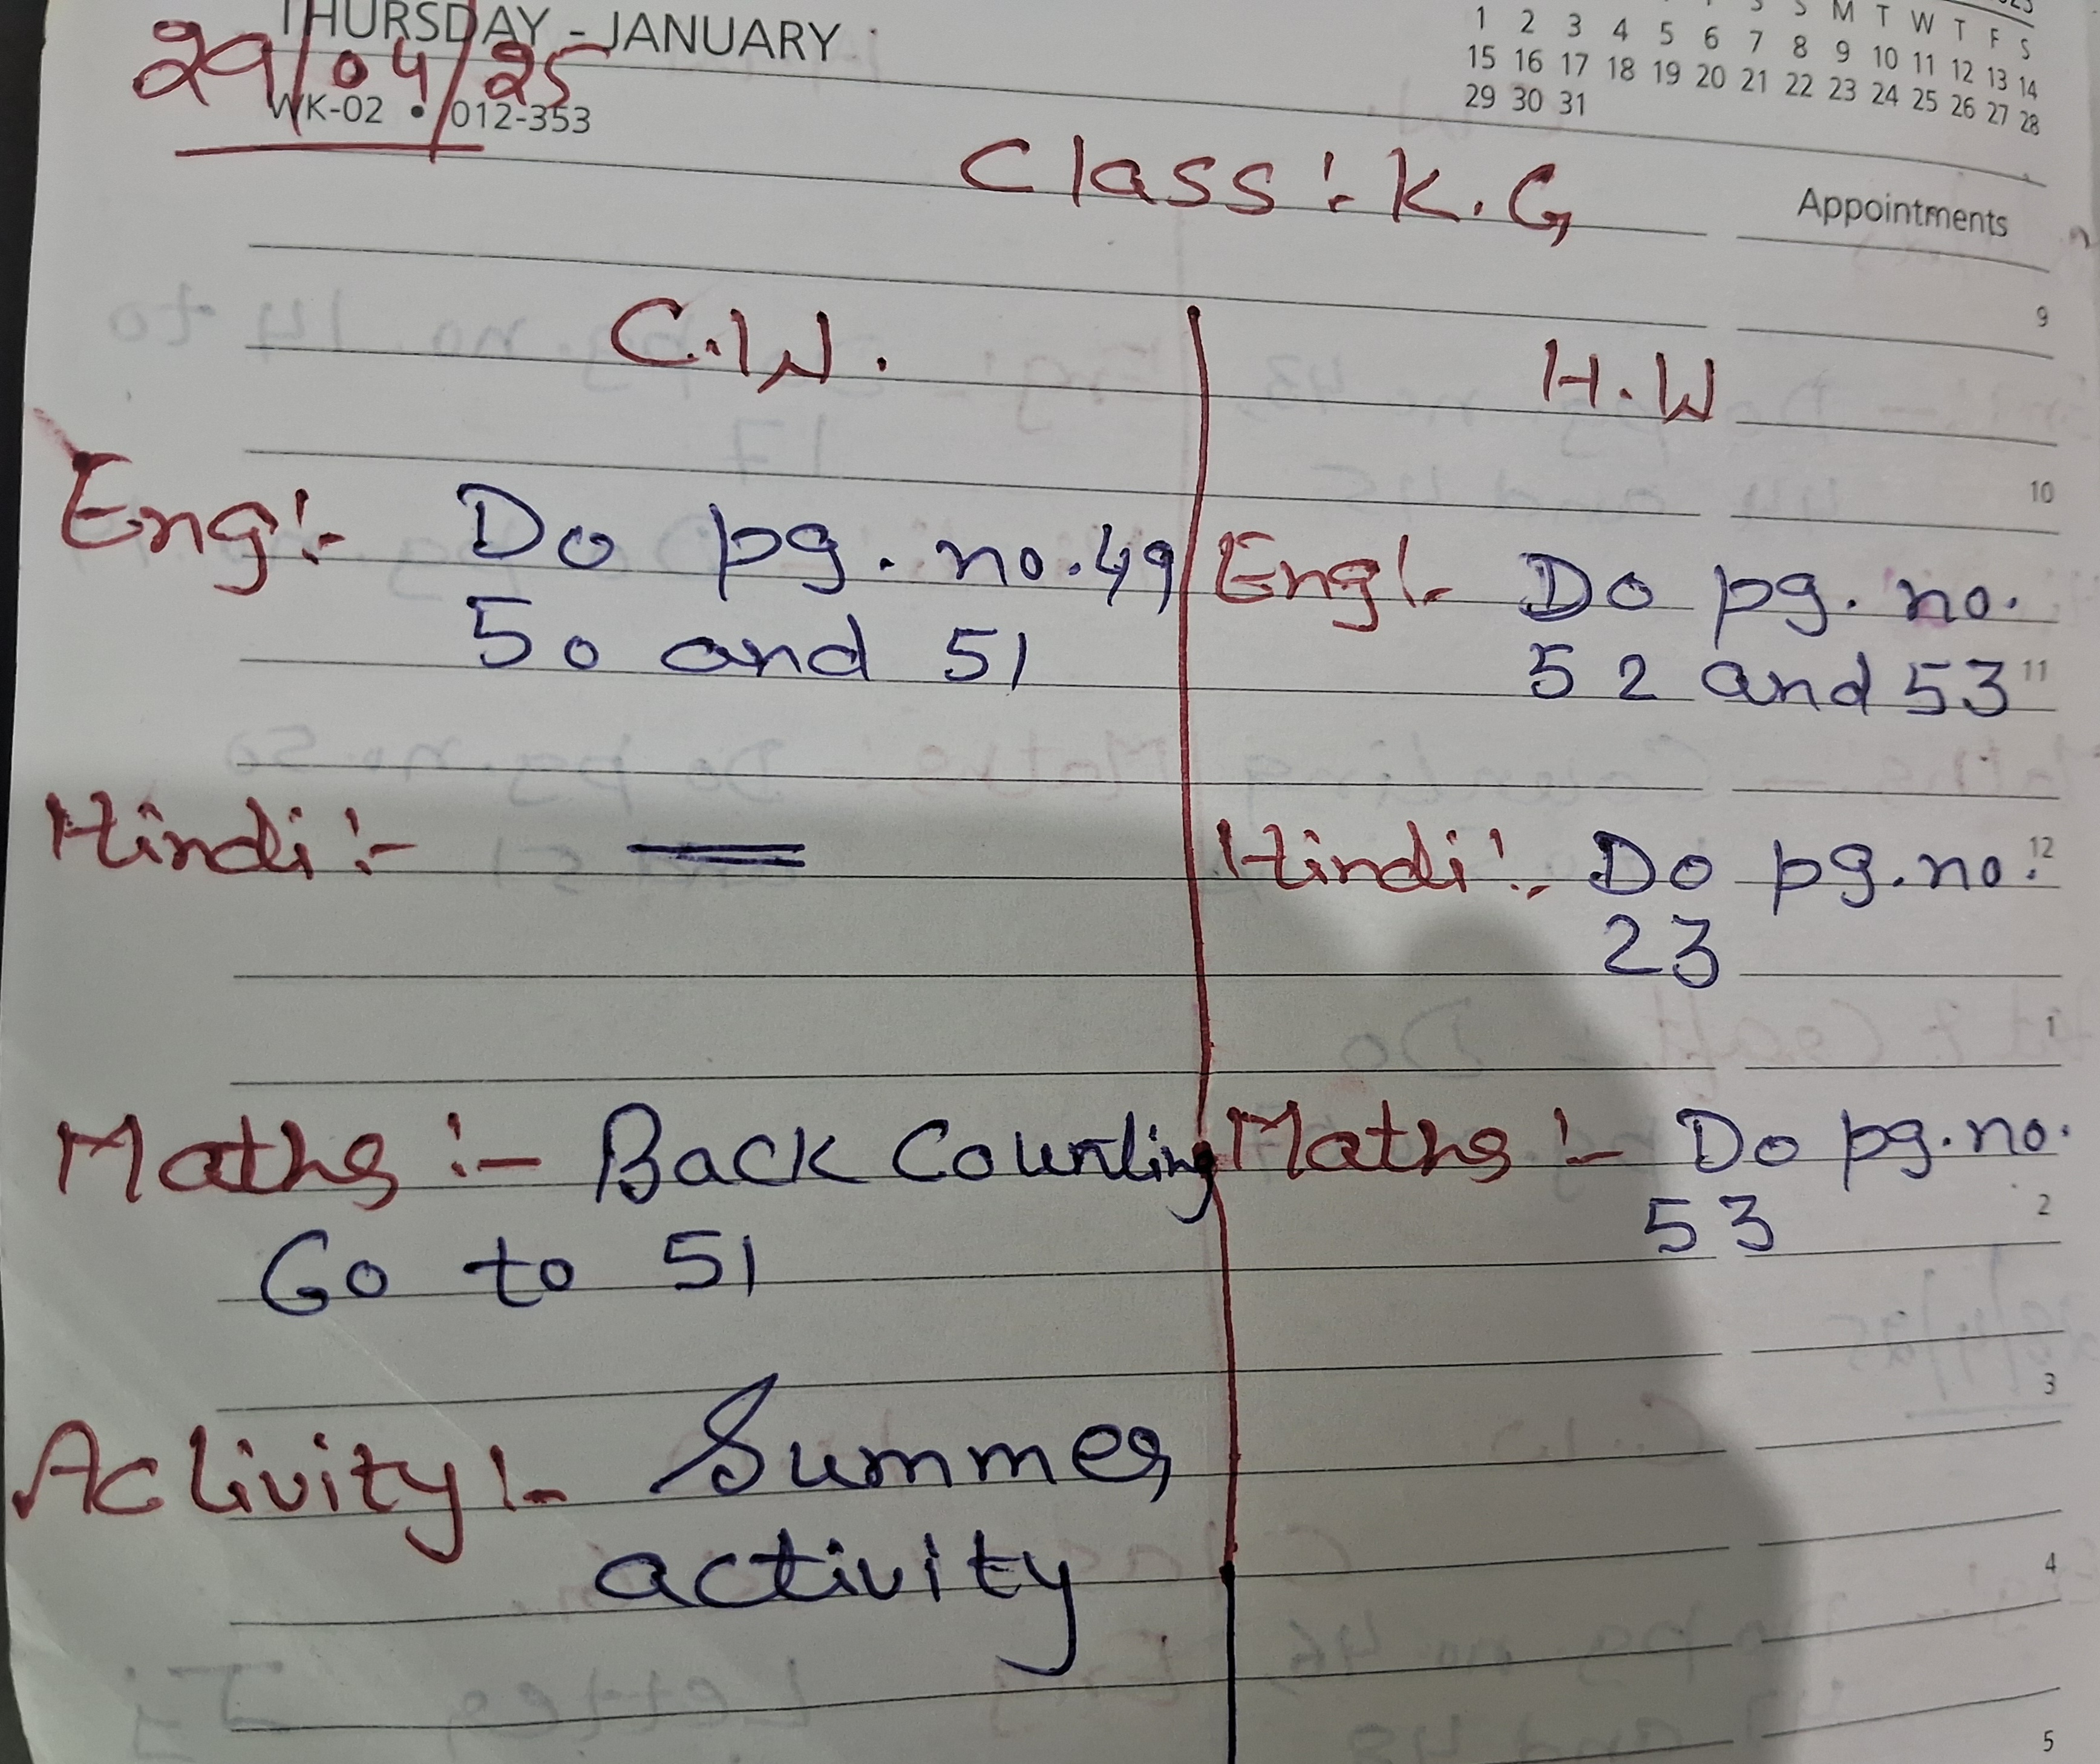 THURSDAY - JANUARY
29/04/25
WK-02 • 012-353
S S M T W T F S
1 2 3 4 5 6 7 8 9 10 11 12 13 14
15 16 17 18 19 20 21 22 23 24 25 26 27 28
29 30 31
Class :- K.G
Appointments
C.W.
H.W
9
10
Eng :- Do pg. no. 49
50 and 51
Eng :- Do pg. no.
52 and 53
11
Hindi :- =
Hindi :- Do pg. no.
12
23
1
Maths :- Back Counting
Go to 51
Maths :- Do pg. no.
53
2
3
Activity :- Summer
activity
4
5